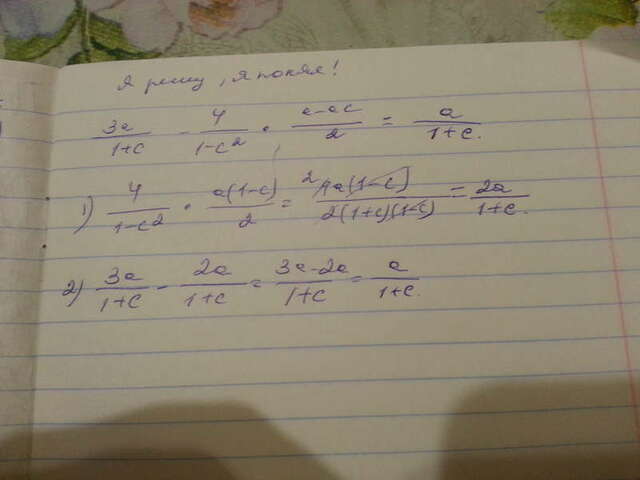 Я решу, я понял!
3a/1+c - 4/1-c² · a-ac/2 = a/1+c.
1) 4/1-c² · a(1-c)/2 = 2 4a(1-c)/2(1+c)(1-c) = 2a/1+c.
2) 3a/1+c - 2a/1+c = 3a-2a/1+c = a/1+c.